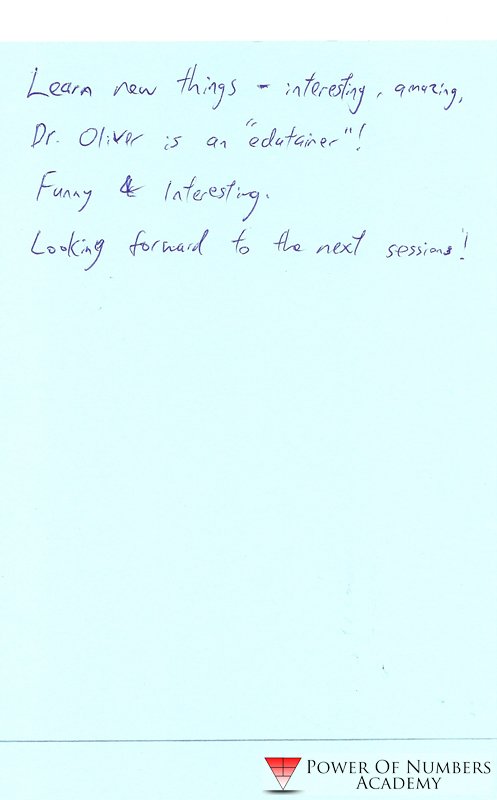 Learn new things - interesting, amazing,
Dr. Oliver is an "edutainer"!
Funny & Interesting.
Looking forward to the next sessions!
POWER OF NUMBERS
ACADEMY